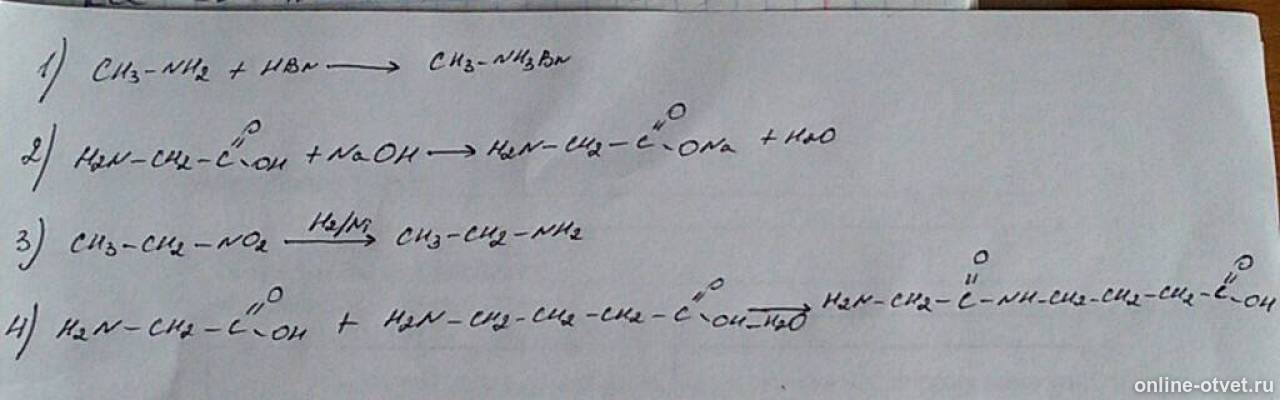 1) CH3-NH2 + HBr ⟶ CH3-NH3Br
2) H2N-CH2-C(=O)-OH + NaOH ⟶ H2N-CH2-C(=O)-ONa + H2O
3) CH3-CH2-NO2 ⟶ H2/Ni CH3-CH2-NH2
4) H2N-CH2-C(=O)-OH + H2N-CH2-CH2-CH2-C(=O)-OH ⟶ -H2O H2N-CH2-C(=O)-NH-CH2-CH2-CH2-C(=O)-OH
online-otvet.ru